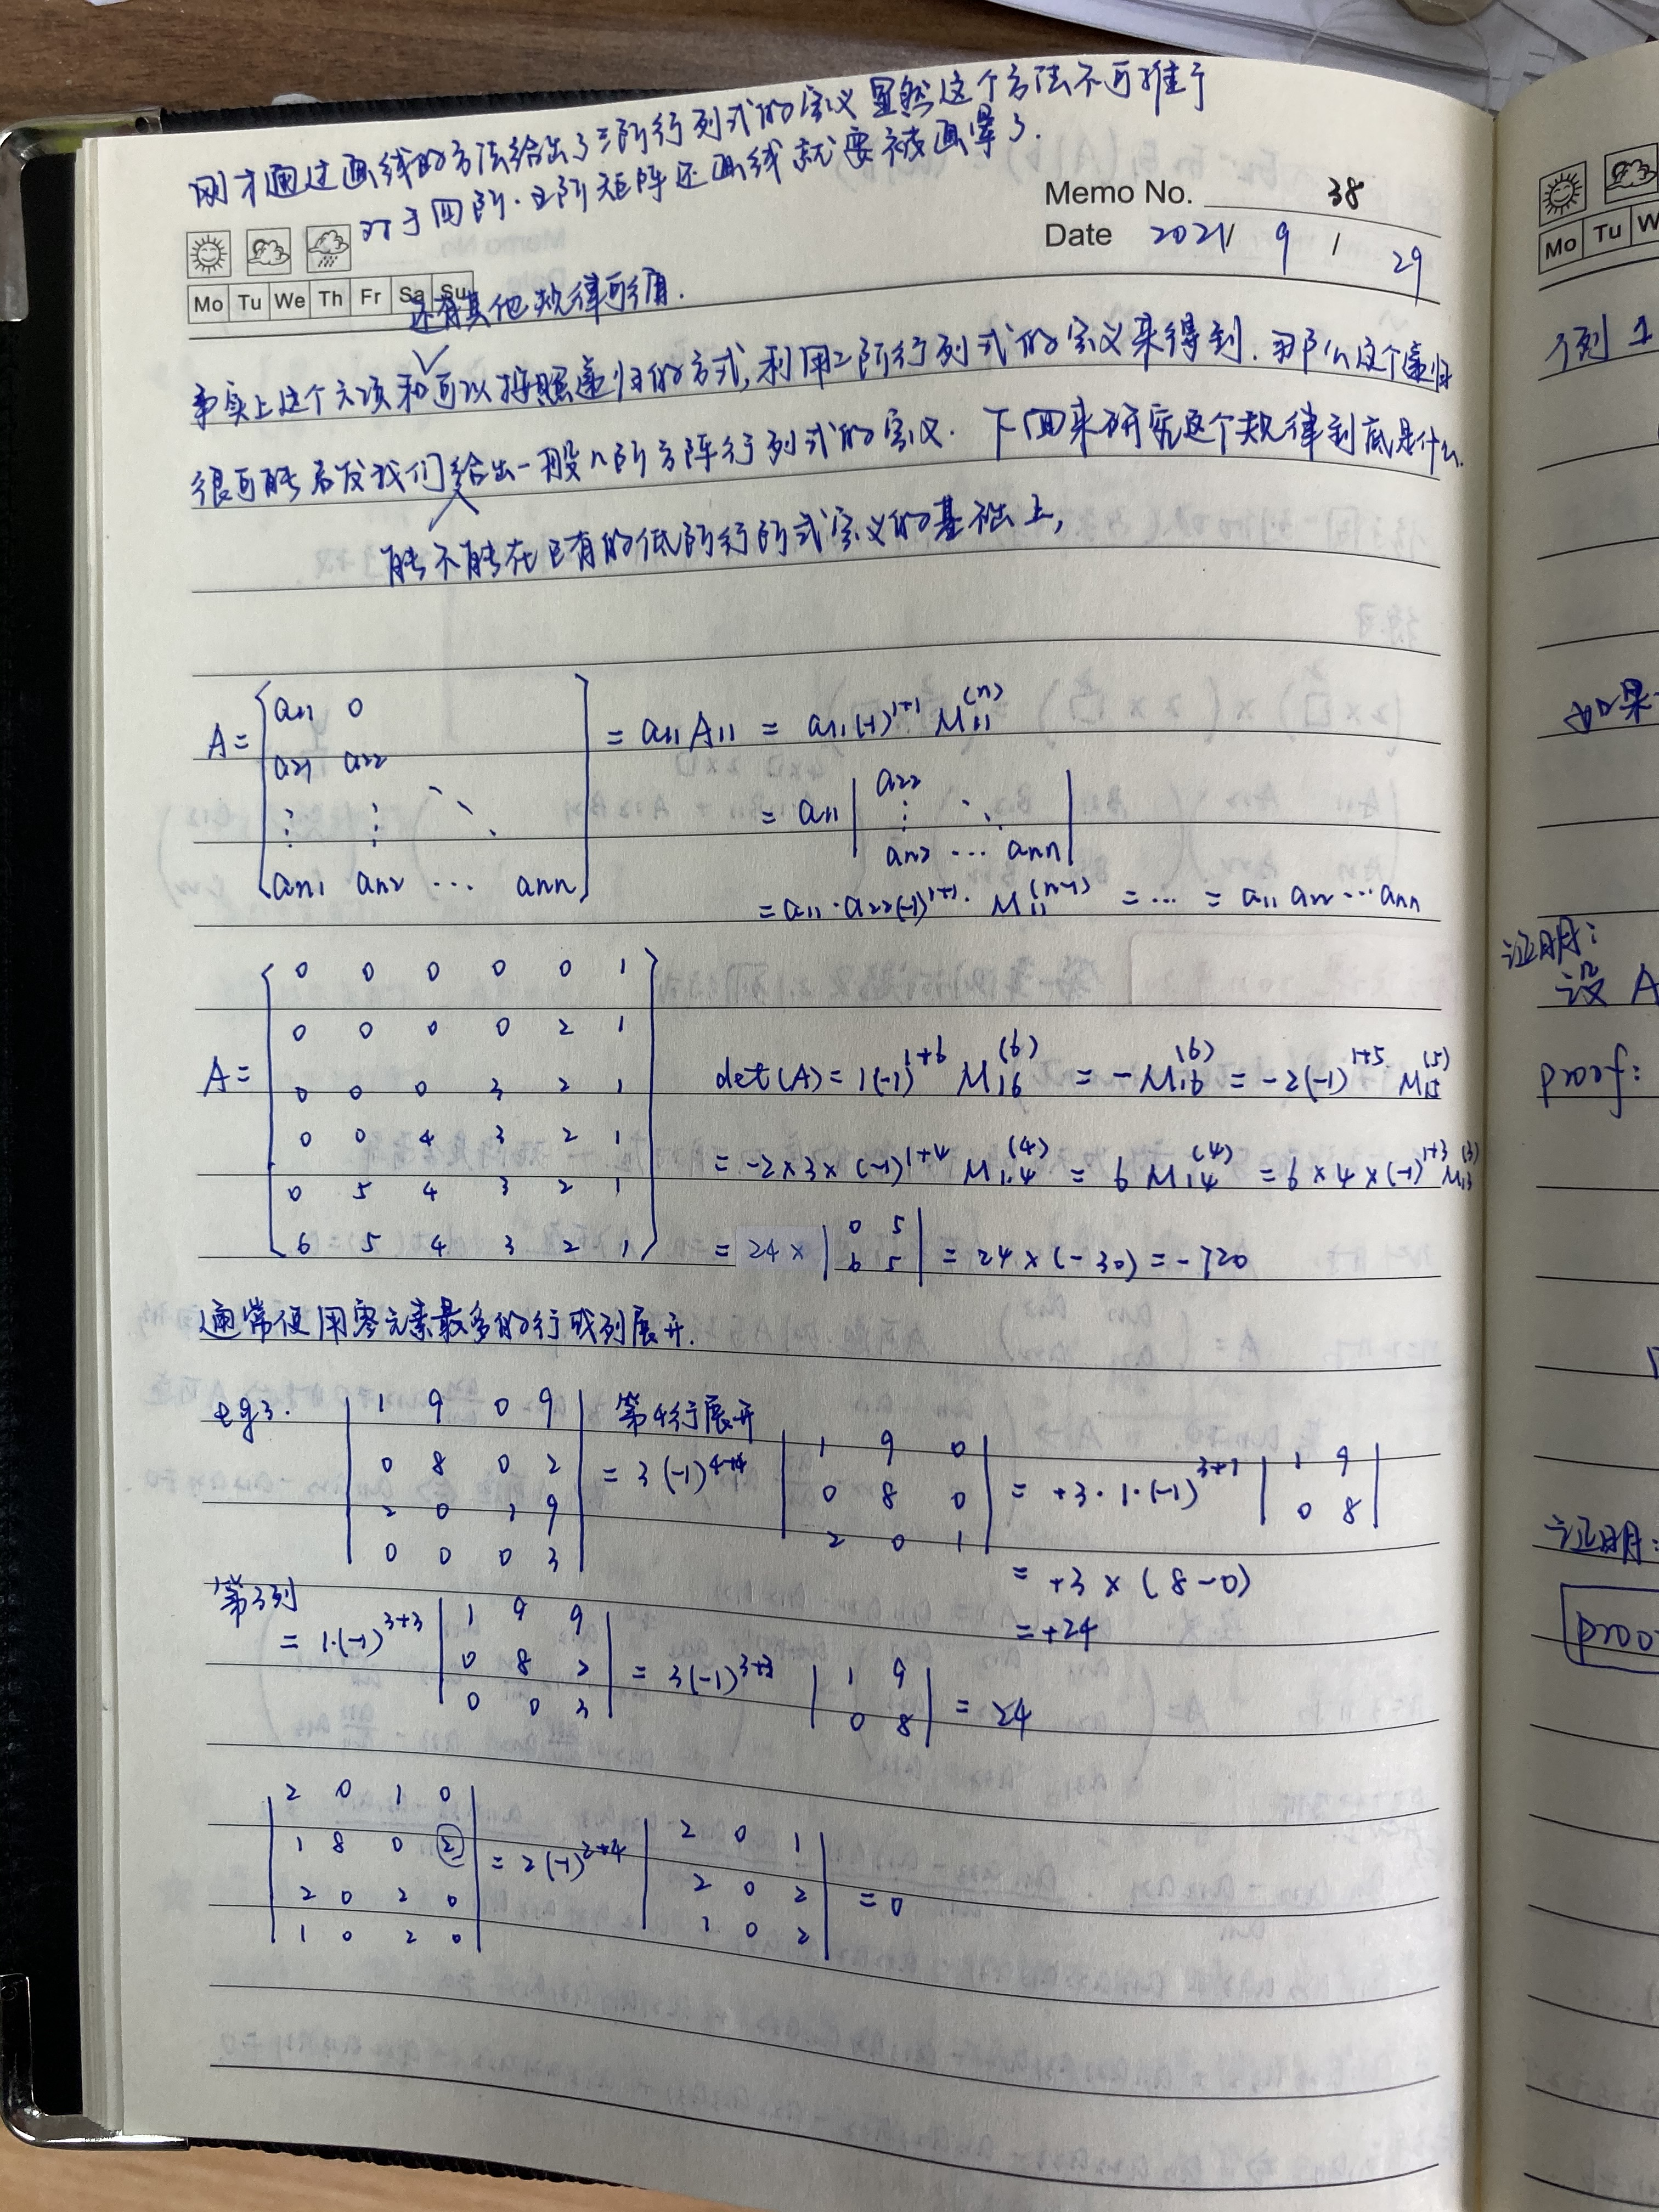 刚才通过画线的方法给出了三阶行列式的定义 显然这个方法不可推广
对于四阶.五阶矩阵还画线就要被画晕了.
Memo No. 38
Date 2021/ 9 / 29
Mo Tu We Th Fr Sa Su
还有其他规律可循.
事实上这个六项和可以按照递归的方式,利用二阶行列式的定义来得到. 那么这个递归
很可能启发我们给出一般n阶方阵行列式的定义. 下面来研究这个规律到底是什么.
能不能在已有的低阶行阶式定义的基础上,
A = [ a11 0
a21 a22
⋮ ⋮ ⋱
an1 an2 ⋯ ann ] = a11 A11 = a11 (-1)^{1+1} M11^{(n)}
= a11 | a22
⋮ ⋱
an2 ⋯ ann |
= a11 · a22 (-1)^{1+1} · M11^{(n-1)} = ... = a11 a22 ⋯ ann
A = [ 0 0 0 0 0 1
0 0 0 0 2 1
0 0 0 3 2 1
0 0 4 3 2 1
0 5 4 3 2 1
6 5 4 3 2 1 ]
det(A) = 1(-1)^{1+6} M16^{(6)} = -M16^{(6)} = -2(-1)^{1+5} M15^{(5)}
= -2×3×(-1)^{1+4} M14^{(4)} = 6 M14^{(4)} = 6×4×(-1)^{1+3} M13^{(3)}
= 24 × | 0 5
6 5 | = 24×(-30) = -720
通常使用零元素最多的行或列展开.
eg3. | 1 9 0 9
0 8 0 2
2 0 1 9
0 0 0 3 |
第4行展开
= 3(-1)^{4+4} | 1 9 0
0 8 0
2 0 1 | = +3·1·(-1)^{3+3} | 1 9
0 8 |
= +3 × (8-0)
= +24
第3列
= 1·(-1)^{3+3} | 1 9 9
0 8 2
0 0 3 | = 3(-1)^{3+3} | 1 9
0 8 | = 24
| 2 0 1 0
1 8 0 2
2 0 2 0
1 0 2 0 | = 2(-1)^{2+4} | 2 0 1
2 0 2
1 0 2 | = 0
Mo Tu W
到 1
如果
证明:
设 A
proof:
证明:
proo